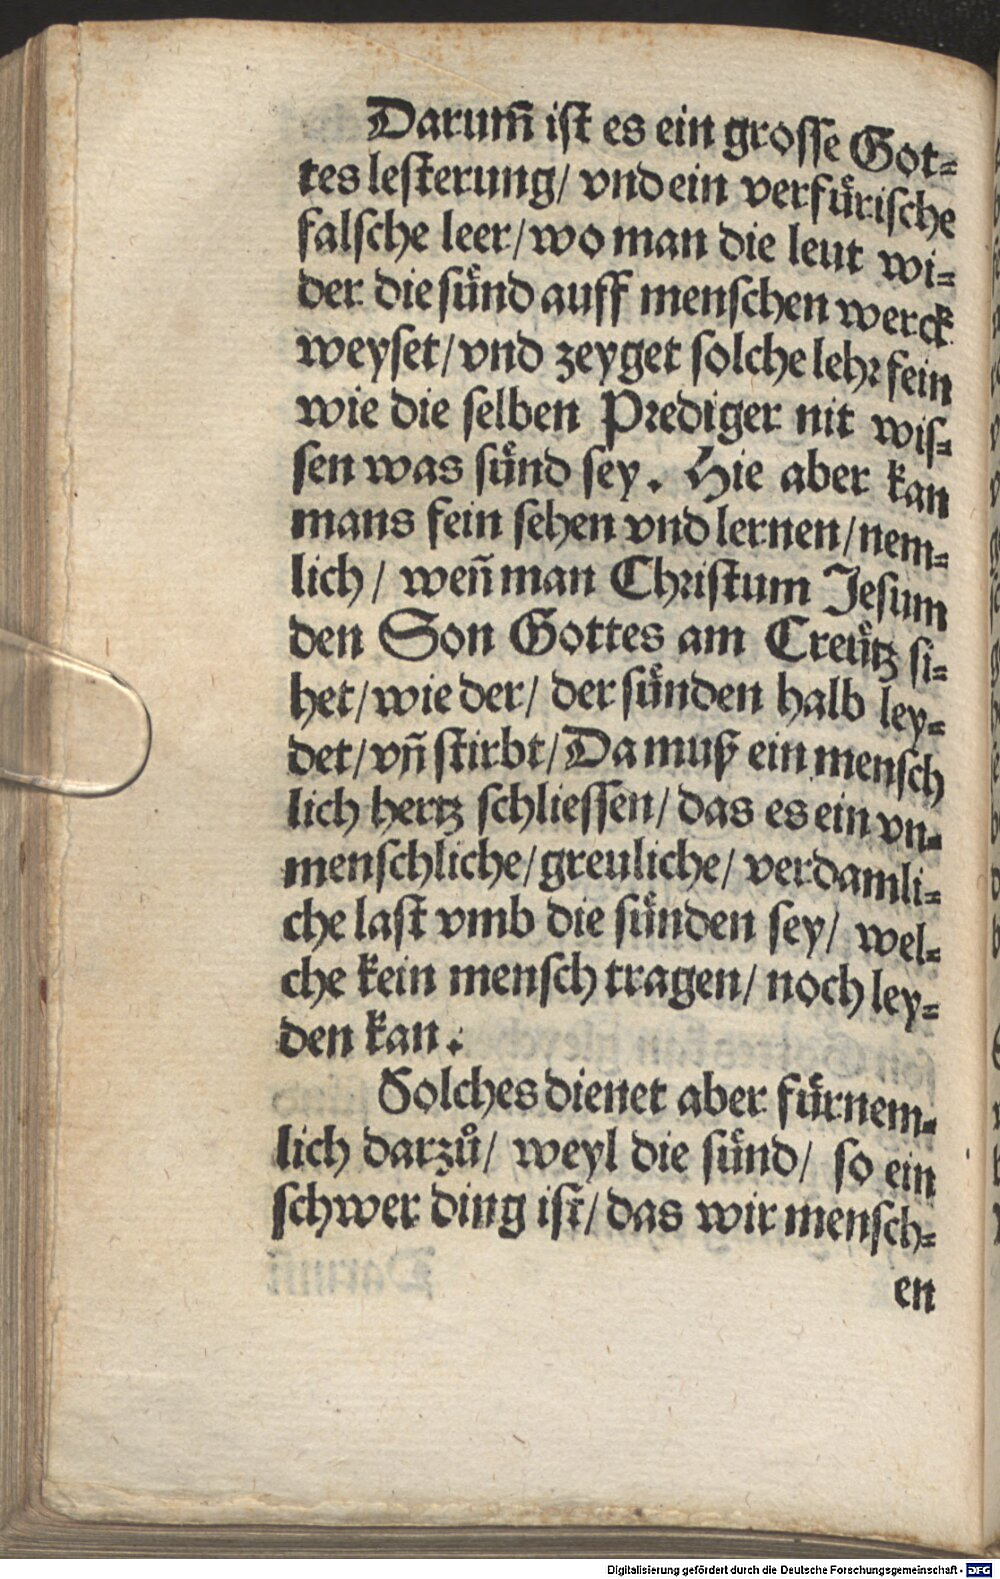 Darum̃ ist es ein grosse Got-
tes lesterung/ vnd ein verfuͤrische
falsche leer/ wo man die leut wi-
der die suͤnd auff menschen werck
weyset/ vnd zeyget solche lehr fein
wie die selben Prediger nit wis-
sen was suͤnd sey. Hie aber kan
mans fein sehen vnd lernen/ nem-
lich/ weñ man Christum Jesum
den Son Gottes am Creuͤtz si-
het/ wie der/ der suͤnden halb ley-
det/ vñ stirbt/ Da muß ein mensch
lich hertz schliessen/ das es ein vn-
menschliche/ greuliche/ verdamli-
che last vmb die suͤnden sey/ wel-
che kein mensch tragen/ noch ley-
den kan.
Solches dienet aber fuͤrnem-
lich darzuͦ/ weyl die suͤnd/ so ein
schwer ding ist/ das wir mensch-
en
Digitalisierung gefördert durch die Deutsche Forschungsgemeinschaft - DFG